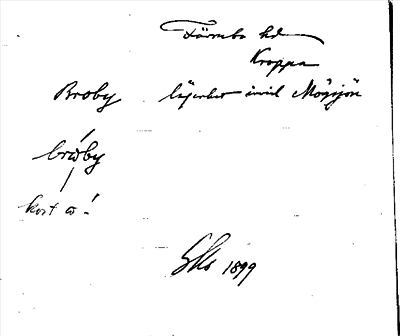 Färnebo hd
Kroppa
Broby lägenhet invid Mögsjön
brωby
kort ω!
1899